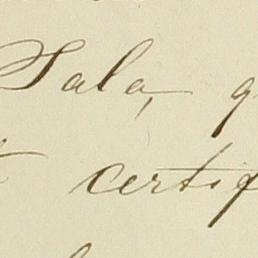 Sala, q
certif